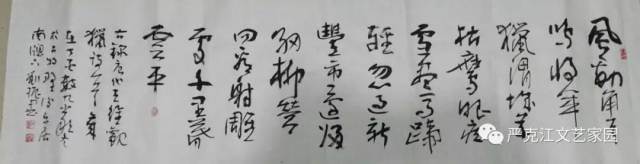 風勁角弓
鳴将軍
獵渭城草
枯鷹眼疾
雪盡馬蹄
輕忽過新
豐市還歸
細柳營
回看射雕
處千里暮
雲平
右録唐代王維觀
獵詩一首
严克江文艺家园